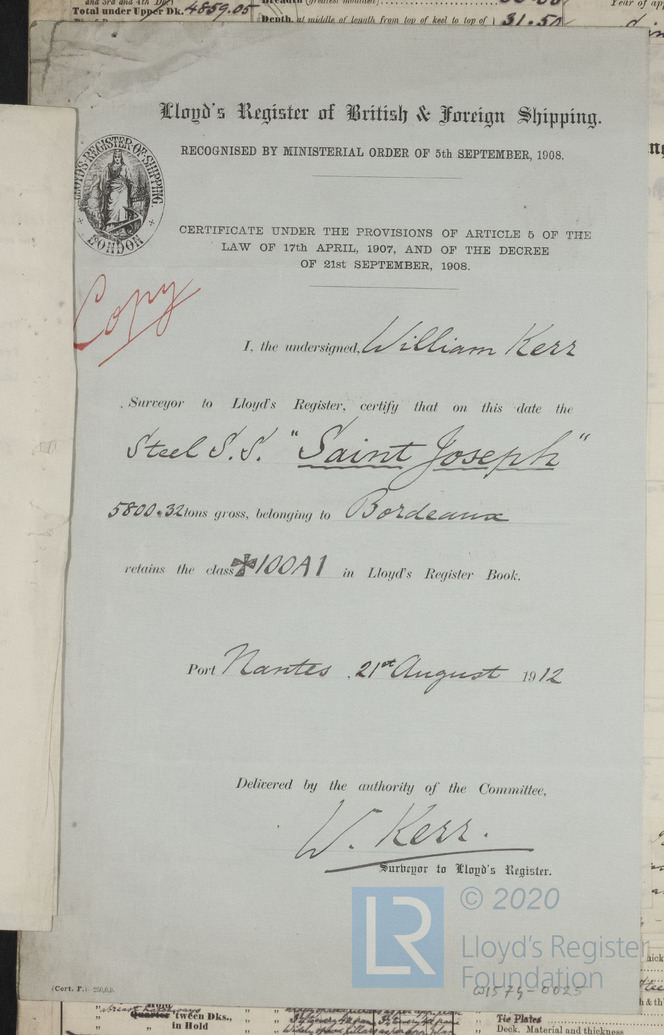 and 3rd and 4th Dk)
Total under Upper Dk. 4859.05
Depth, at middle of length from top of keel to top of 31.50
Lloyd's Register of British & Foreign Shipping.
RECOGNISED BY MINISTERIAL ORDER OF 5th SEPTEMBER, 1908.
LLOYD'S REGISTER OF SHIPPING
LONDON
CERTIFICATE UNDER THE PROVISIONS OF ARTICLE 5 OF THE
LAW OF 17th APRIL, 1907, AND OF THE DECREE
OF 21st SEPTEMBER, 1908.
Copy
I, the undersigned, William Kerr
Surveyor to Lloyd's Register, certify that on this date the
Steel S.S. "Saint Joseph"
5800.32 tons gross, belonging to Bordeaux
retains the class ✠100A1 in Lloyd's Register Book.
Port Nantes, 21st August 1912
Delivered by the authority of the Committee,
W. Kerr.
Surveyor to Lloyd's Register.
LR © 2020
Lloyd's Register
Foundation
W1574-0025
(Cert. F.)
Quarter 'tween Dks.,
in Hold
Tie Plates
Deck. Material and thickness